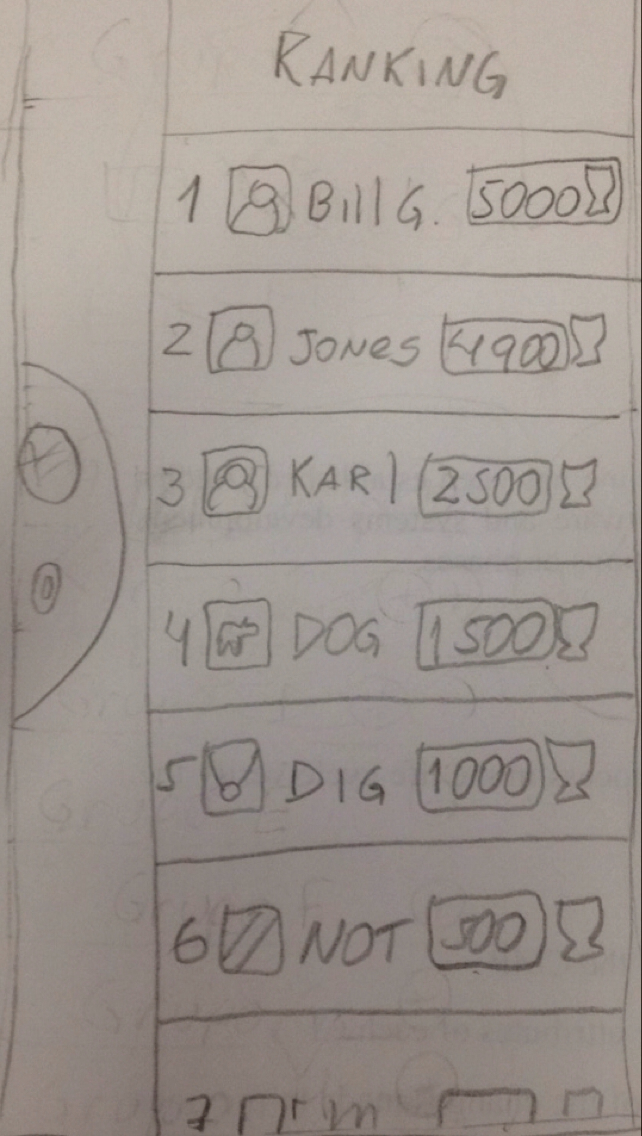 RANKING
1 Bill G. 5000
2 JONes 4900
3 KARl 2500
4 DOG 1500
5 DIG 1000
6 NOT 500
7